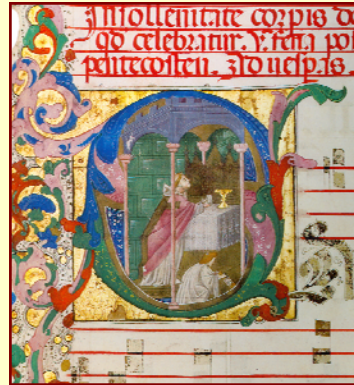 Jn sollenitate corpis d
qd celebratur. V. feria po
pentecosten. Ad uespas.